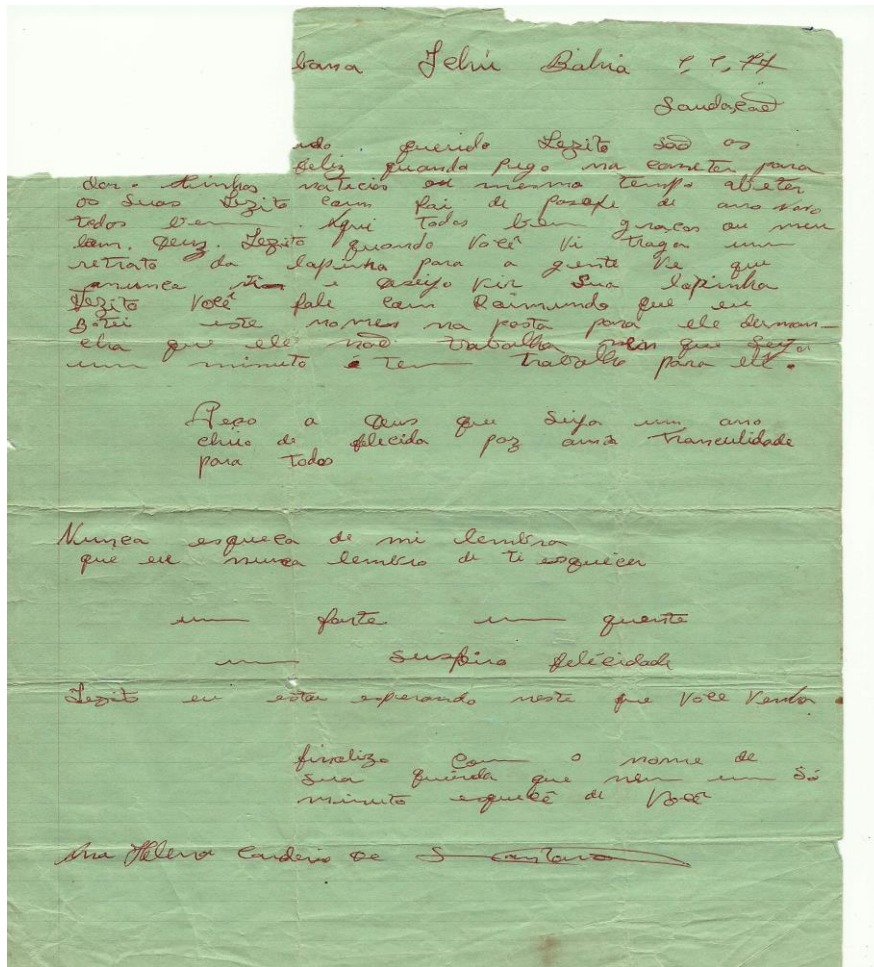 bana Jehú Bahia 1, 1, 77
Saudação
ndo. querido Lezito são os
feliz quando pego na caneter para
dar. Minhas naticios ou mesmo tempo abeter
os Suas Lezito com foi de pasage de ano novo
todos bem. Aqui todos bem graças ou meu
bom. Deuz. Lezito quando Você Vi traga um
retrato da lapinha para a gente Ve que
nunca e deseijo Vir Sua lapinha
Lezito Você fale com Raimundo que eu
Botei este nomes na posta para ele
que ele não trabalha nen que Seija
um minuto e tem trabalho para ele.
Peço a Deus que Sija um ano
cheio de felecida paz amor tranculidade
para Todos
Nunca esqueca de mi lembra
que eu nunca lembro de ti esquicer
um forte um quente
um suspiro felicidade
Lezito eu estar esperando neste que Voce Venha.
finalizo com o nome de
Sua queirda que nem um Só
minuto esquecê de Você
Ana Helena Cordeiro De Santana